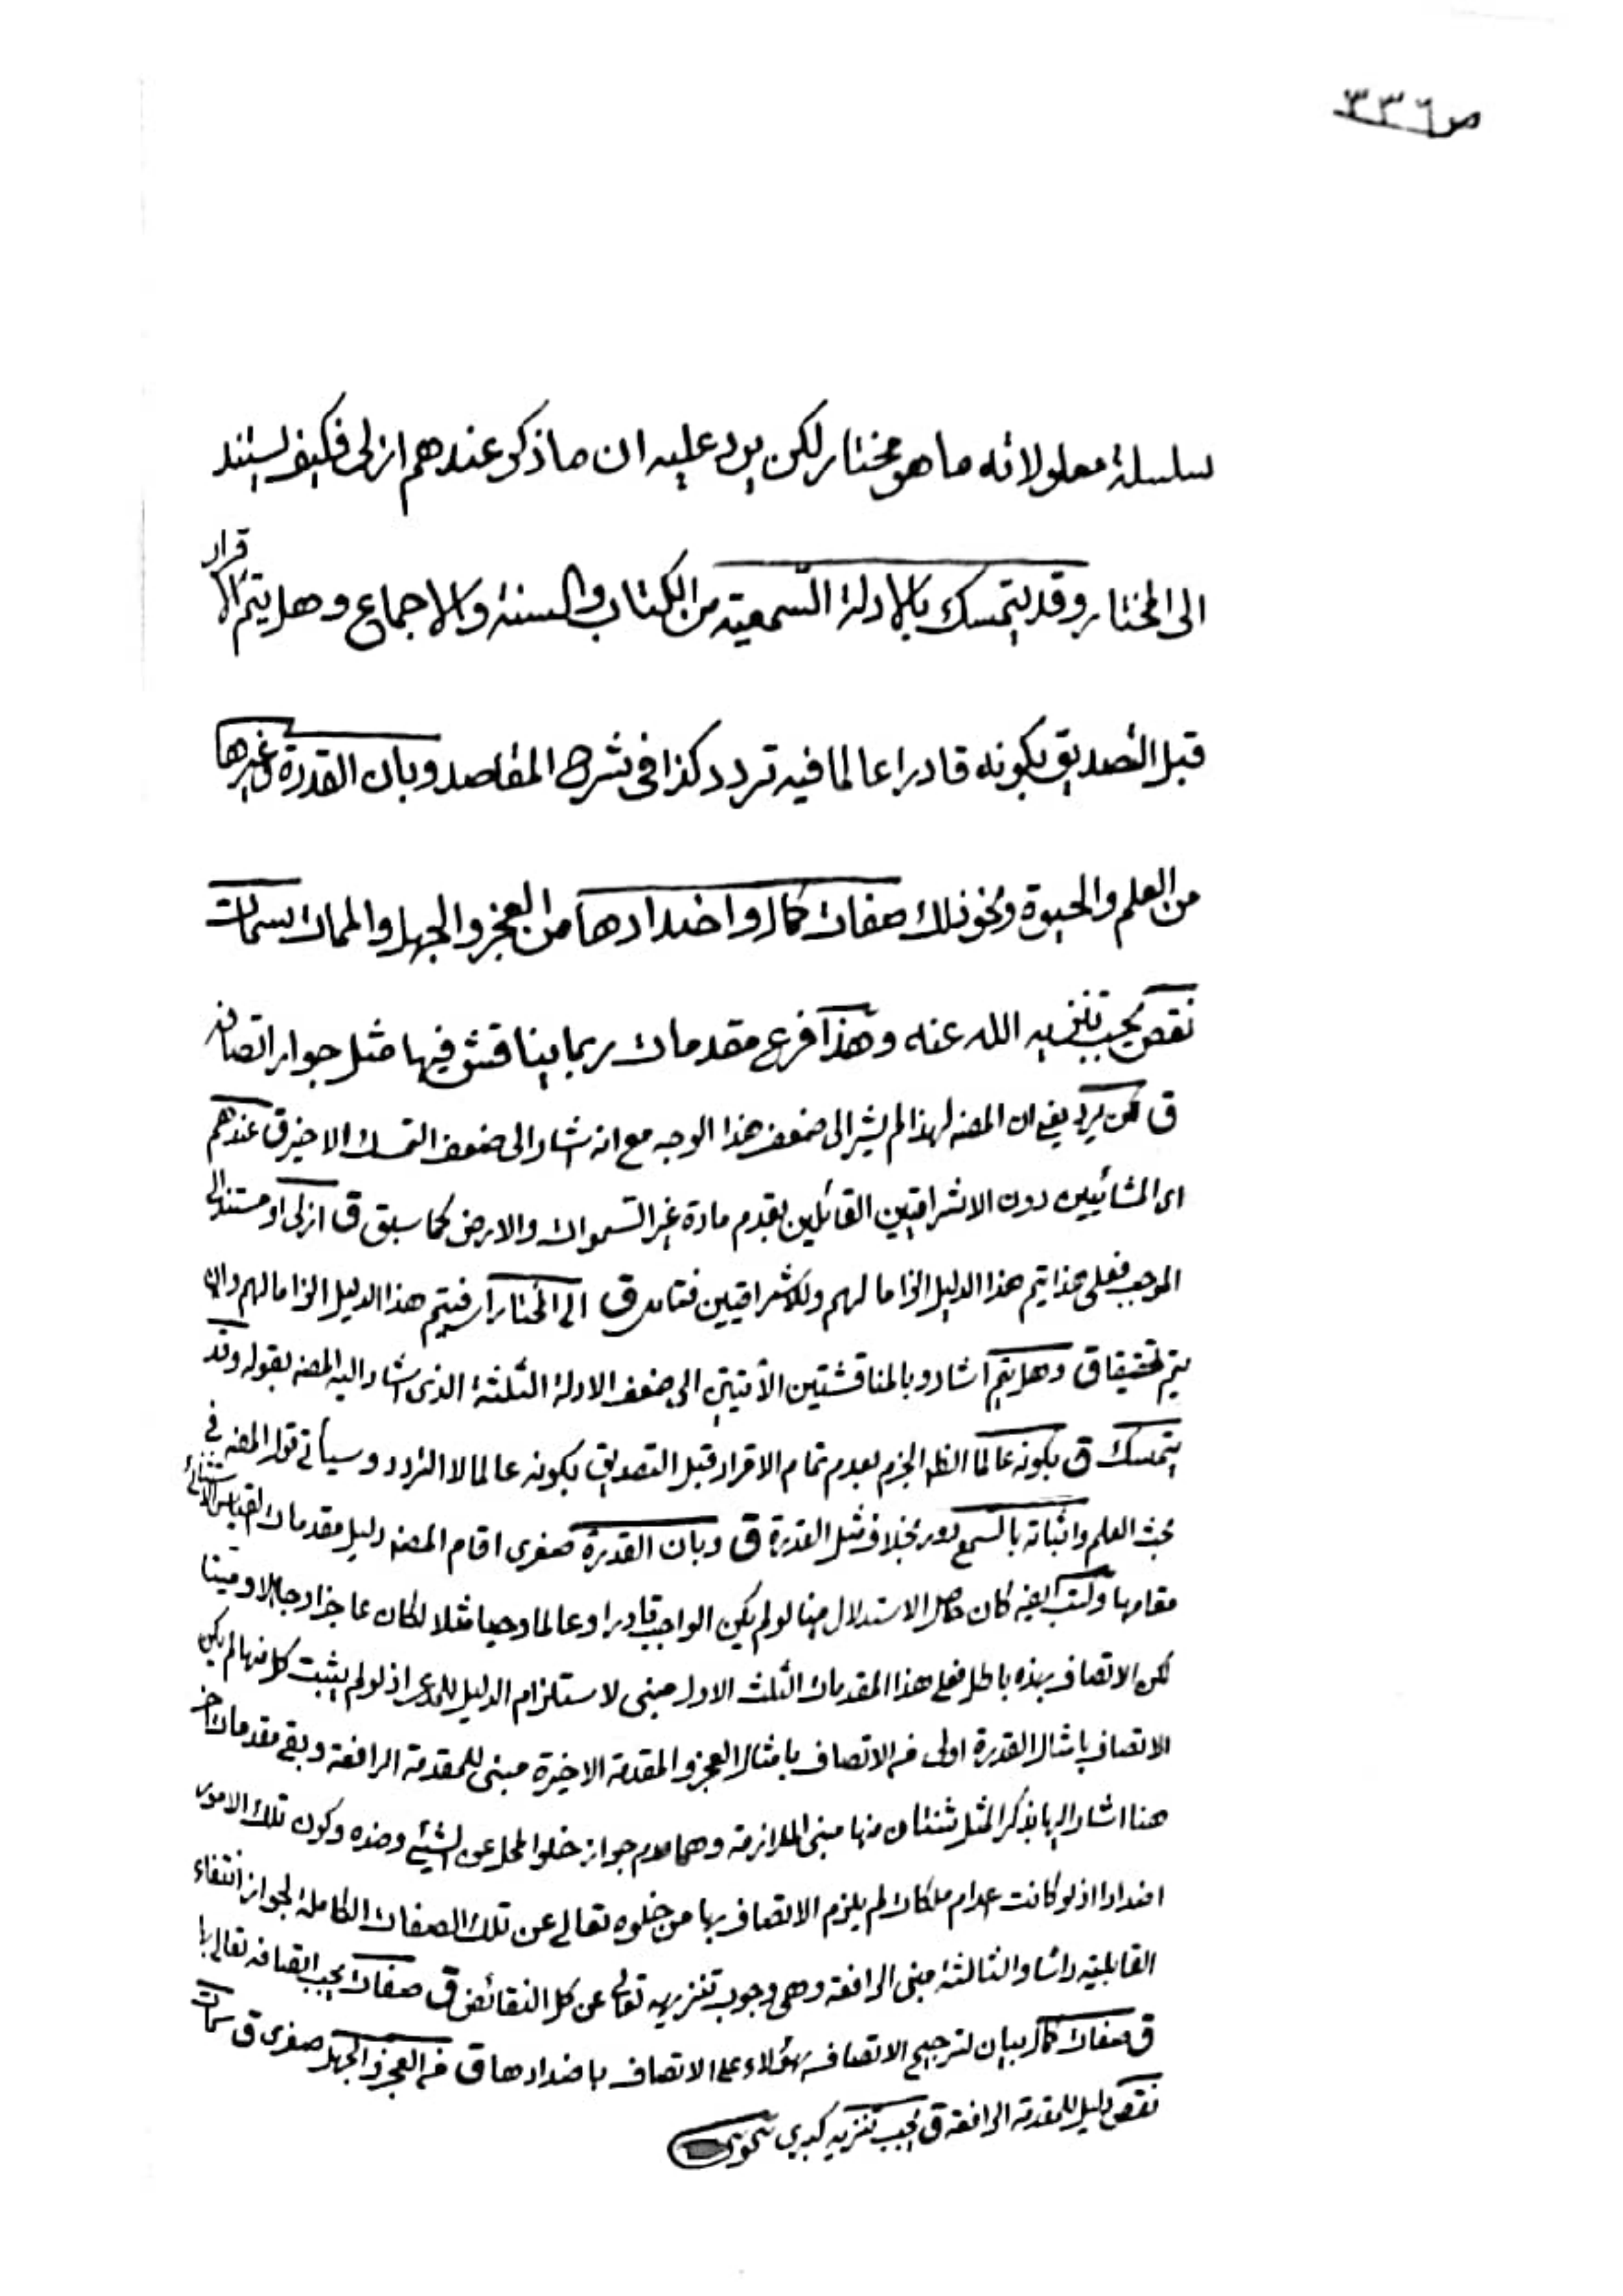 ص٣٣٦
سلسلة معلولاته ما هو مختار لكن يرد عليه ان ما ذكر عندهم ازلى فكيف يستند
الى المختار وقد يتمسك بالادلة السّمعيّة من الكتاب والسنة والاجماع وهل يتم الاقرار
قبل التصديق بكونه قادرا عالما فيه تردد كذا فى شرح المقاصد وبان القدرة وغيرها
من العلم والحيوة ونحو ذلك صفات كمال واضدادها من العجز والجهل والممات سمات
نقص يجب تنزيه الله عنه وهذا فرع مقدمات ربما يناقش فيها مثل جواز اتصافه
ق لكن يرد يعنى ان المصنف لهذا لم يشر الى ضعف هذا الوجه مع انه اشار الى ضعف التمسك الاخير ق عندهم
اى المشائيين دون الاشراقيين القائلين بقدم مادة غير السموات والارض كما سبق ق ازلى او مستند الى
الموجب فعلى هذا يتم هذا الدليل الزاما لهم وللاشراقيين فتامل ق الى المختار فيتم هذا الدليل الزاما لهم وان لم
يتم تحقيقا ق وهل يتم اشار وبالمناقشتين الآتيتين الى ضعف الادلة الثلثة الذى اشار اليه المصنف بقوله وقد
يتمسك ق بكونه عالما الظ الجزم بعدم تمام الاقرار قبل التصديق بكونه عالما لا التردد وسيأتى قول المصنف فى
بحث العلم واثباته بالسمع دور بخلاف مثل القدرة ق وبان القدرة صغرى اقام المصنف دليل مقدمات القياس الاستثنائى
مقامها ولتب ايض كان حاصل الاستدلال هنا لو لم يكن الواجب قادرا وعالما وحيا مثلا لكان عاجزا وجاهلا وميتا
لكن الاتصاف بهذه باطل فعلى هذا المقدمات الثلث الاول مبنى لاستلزام الدليل للمدعى اذ لو لم يثبت كل منها لم يكن
الاتصاف بامثال القدرة اولى من الاتصاف بامثال العجز والمقدمة الاخيرة مبنى للمقدمة الرافعة وبقى مقدمات اخر
هنا اشار اليها بذكر المثل ثنتان منها مبنى الملازمة وهما عدم جواز خلو المحل عن الشيئ وضده وكون تلك الامور
اضدادا اذ لو كانت عدام ملكات لم يلزم الاتصاف بها من خلوه تعالى عن تلك الصفات الكاملة لجواز انتفاء
القابلية راسا والثالثة مبنى الرافعة وهى وجوب تنزيهه تعالى عن كل النقائض ق صفات يجب اتصافه تعالى بها
ق صفات كمال بيان لترجيح الاتصاف بهؤلاء على الاتصاف باضدادها ق من العجز والجهل صغرى ق سمات
نقص دليل للمقدمة الرافعة ق يجب تنزيه كبرى